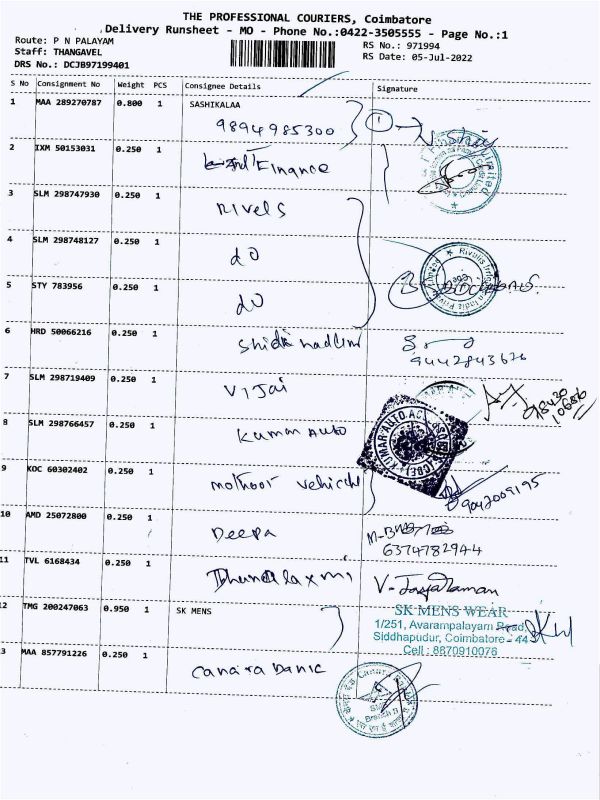 THE PROFESSIONAL COURIERS, Coimbatore
Delivery Runsheet - MO - Phone No.:0422-3505555 - Page No.:1
Route: P N PALAYAM
Staff: THANGAVEL
DRS No.: DCJB97199401
RS No.: 971994
RS Date: 05-Jul-2022
S No Consignment No Weight PCS Consignee Details Signature
1 MAA 289270787 0.800 1 SASHIKALAA
9894985300 1
2 IXM 50153031 0.250 1 Finance
3 SLM 298747930 0.250 1 Rivels
4 SLM 298748127 0.250 1 do
5 STY 783956 0.250 1 do
6 HRD 50066216 0.250 1
9442843626
7 SLM 298719409 0.250 1 Vijai
98430
10686
8 SLM 298766457 0.250 1 Kumar Auto
KUMAR AUTO
9 KOC 60302402 0.250 1 mothoot vehicle
9042009195
10 AMD 25072800 0.250 1 Deepa
6374782944
11 TVL 6168434 0.250 1 Dhanalaxmi V. Jayaraman
12 TMG 200247063 0.950 1 SK MENS
SK MENS WEAR
1/251, Avarampalayam Road,
Siddhapudur, Coimbatore - 44
Cell : 8870910076
3 MAA 857791226 0.250 1 Canara Bank